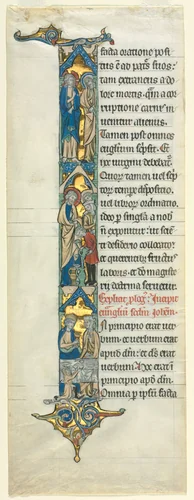 facta oratione posi
tus ē ad patres suos:
tam extraneus a do
lore mortis. quam a cor
ruptione carnis in
venitur alienus.
Tamen post omnes
euglium sepsit. Et
hoc virgini debebat.
Quorum tamen vel sep
torum tempis dispositio.
vel librorum ordinatio.
ideo p singla a nob
non exponitur. ut scien
ti desiderio collocato.
et querentib; fructus
laboris. et deo magiste
rii doctrina servetur.
Explicit plog. Incipit
euuglium scdm Iohem.
In principio erat ver
bum. et verbum erat
apud dm. et ds erat
verbum. Hoc erat in
principio apud dm.
Omnia p ipsum facta